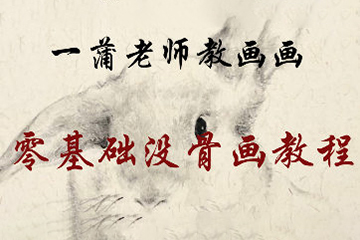 一蒲老师教画画
零基础没骨画教程